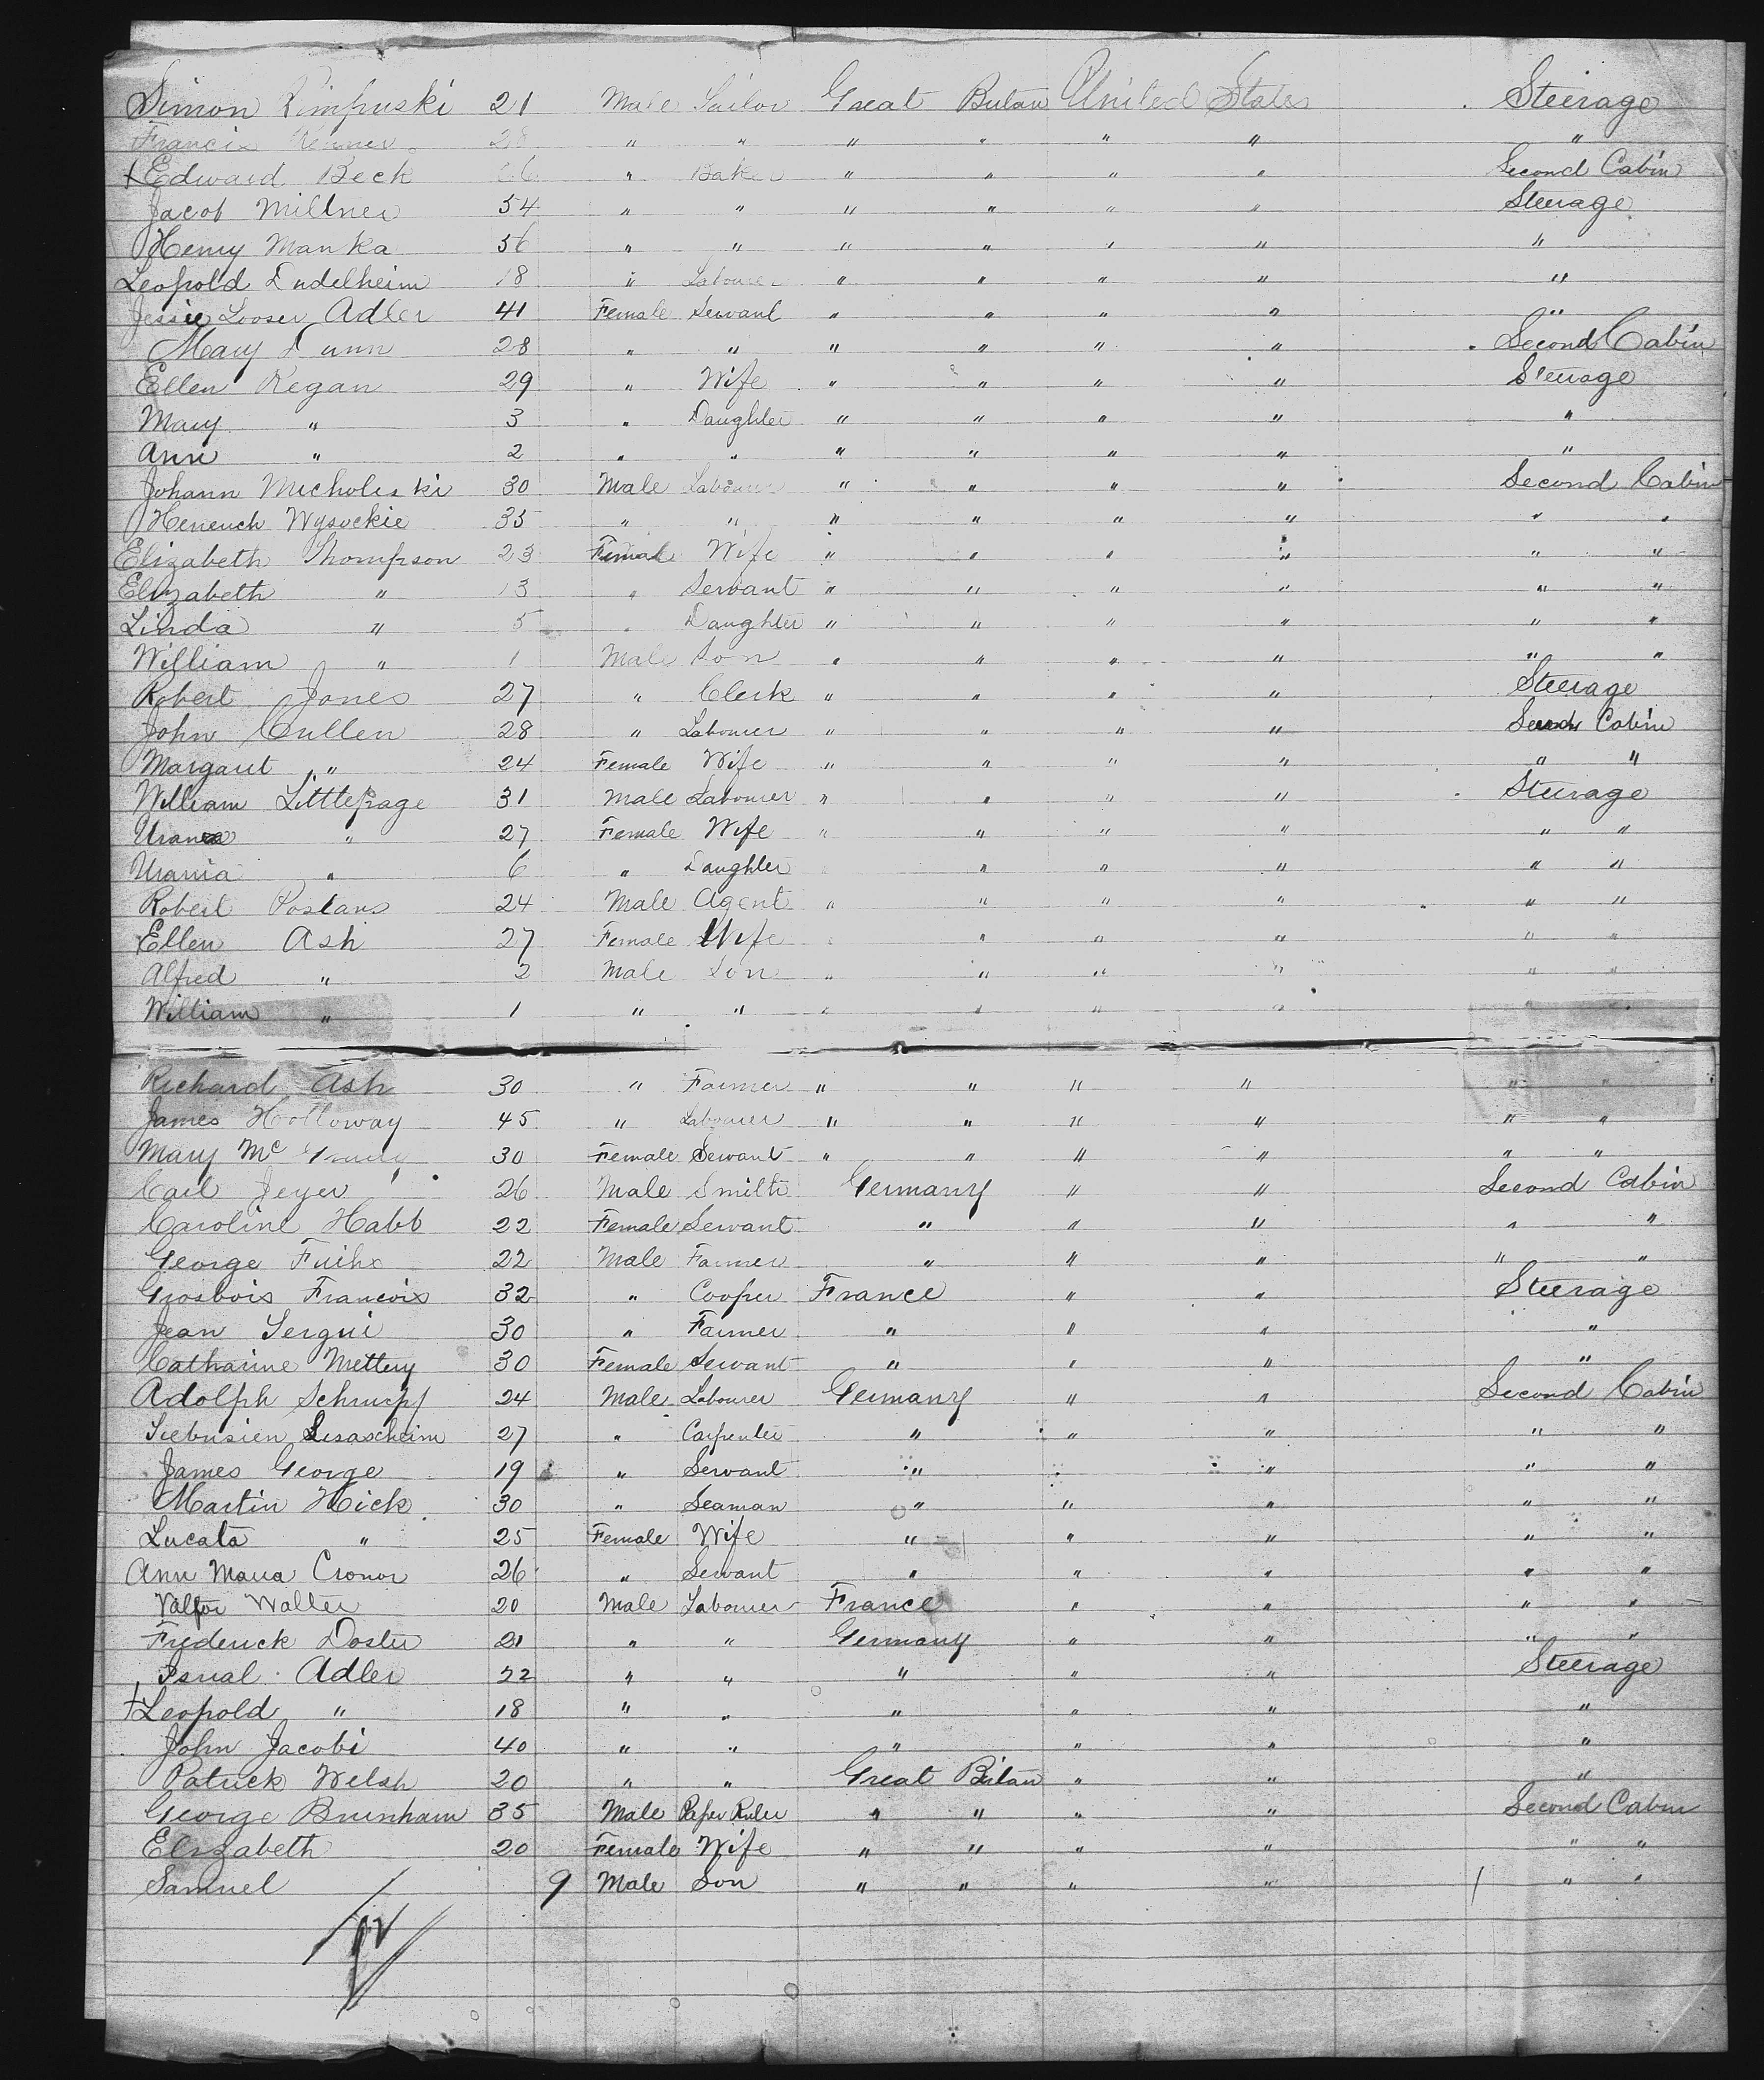 Simon Pimpuski 21 Male Sailor Great Britan United States Steerage
Francis 28 " " " " " " "
+ Edward Beck 26 " Baker " " " " Second Cabin
Jacob Millner 54 " " " " " " Steerage
Henry Manka 56 " " " " " " "
Leopold Dudelheim 18 " Labourer " " " " "
Jessie Looser Adler 41 Female Servant " " " " "
Mary Dunn 28 " " " " " " Second Cabin
Ellen Regan 29 " Wife " " " " Steerage
Mary " 3 " Daughter " " " " "
Ann " 2 " " " " " " "
Johann Micholiski 30 Male Labourer " " " " Second Cabin
Henerich Wysockie 35 " " " " " " " "
Elizabeth Thompson 23 Female Wife " " " " " "
Elizabeth " 13 " Servant " " " " " "
Linda " 5 " Daughter " " " " " "
William " 1 Male Son " " " " " "
Robert Jones 27 " Clerk " " " " Steerage
John Cullen 28 " Labourer " " " " Second Cabin
Margaret " 24 Female Wife " " " " " "
William Littlepage 31 Male Labourer " " " " Steerage
Urania " 27 Female Wife " " " " " "
Urania " 6 " Daughter " " " " "
Robert Postans 24 Male Agent " " " " " "
Ellen Ash 27 Female Wife " " " " " "
Alfred " 2 Male Son " " " " " "
William " 1 " " " " " " " "
Richard Ash 30 " Farmer " " " " " "
James Holloway 45 " Labourer " " " " " "
Mary Mc 30 Female Servant " " " " " "
Carl Jeyer 26 Male Smith Germany " " Second Cabin
Caroline Habb 22 Female Servant " " " " "
George Fuihs 22 Male Farmer " " " " "
Grosbois Francois 32 " Cooper France " " Steerage
Jean Sergui 30 " Farmer " " " "
Catharine Mettery 30 Female Servant " " " "
Adolph Schrumpf 24 Male Labourer Germany " " Second Cabin
27 " Carpenter " " " " "
James George 19 " Servant " " " " "
Martin Hick 30 " Seaman " " " " "
Lucata " 25 Female Wife " " " " "
Ann Maria Cronor 26 " Servant " " " " "
Waller 20 Male Labourer France " " " "
Frederick Doster 21 " " Germany " " " "
Isrial Adler 22 " " " " " Steerage
+ Leopold " 18 " " " " " "
John Jacobi 40 " " " " " "
Patrick Welsh 20 " " Great Britan " " "
George Brunham 35 Male Paper Ruler " " " " Second Cabin
Elizabeth 20 Female Wife " " " " " "
Samuel 9 Male Son " " " " " "